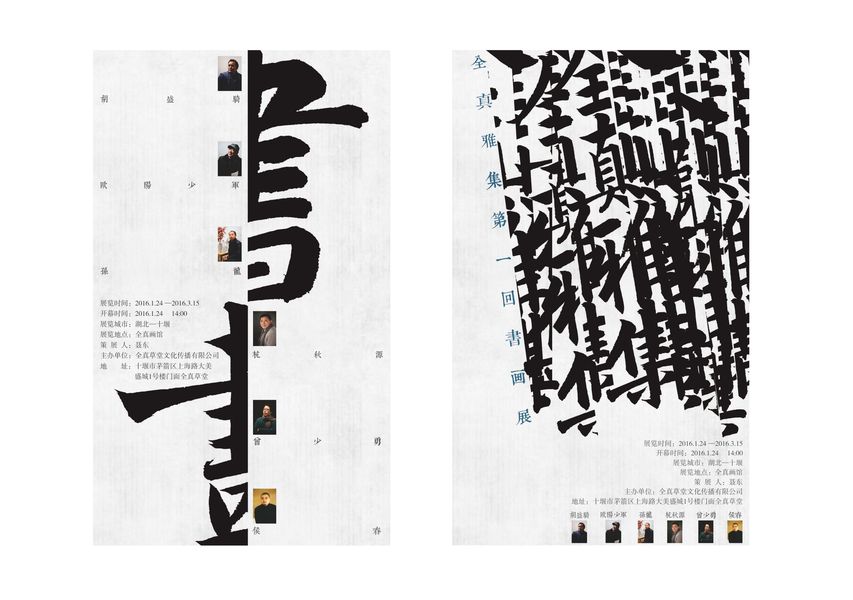 胡 盛 騎
歐 陽 少 軍
孫 龍
展览时间：2016.1.24—2016.3.15
开幕时间：2016.1.24 14:00
展览城市：湖北—十堰
展览地点：全真画馆
策 展 人：聂东
主办单位：全真草堂文化传播有限公司
地 址：十堰市茅箭区上海路大美
盛城1号楼门面全真草堂
杭 秋 源
曾 少 勇
侯 春
書
畫
全真雅集第一回書画展
全真雅集
展览时间：2016.1.24—2016.3.15
开幕时间：2016.1.24 14:00
展览城市：湖北—十堰
展览地点：全真画馆
策 展 人：聂东
主办单位：全真草堂文化传播有限公司
地址：十堰市茅箭区上海路大美盛城1号楼门面全真草堂
胡盛騎 歐陽少軍 孫龍 杭秋源 曾少勇 侯春